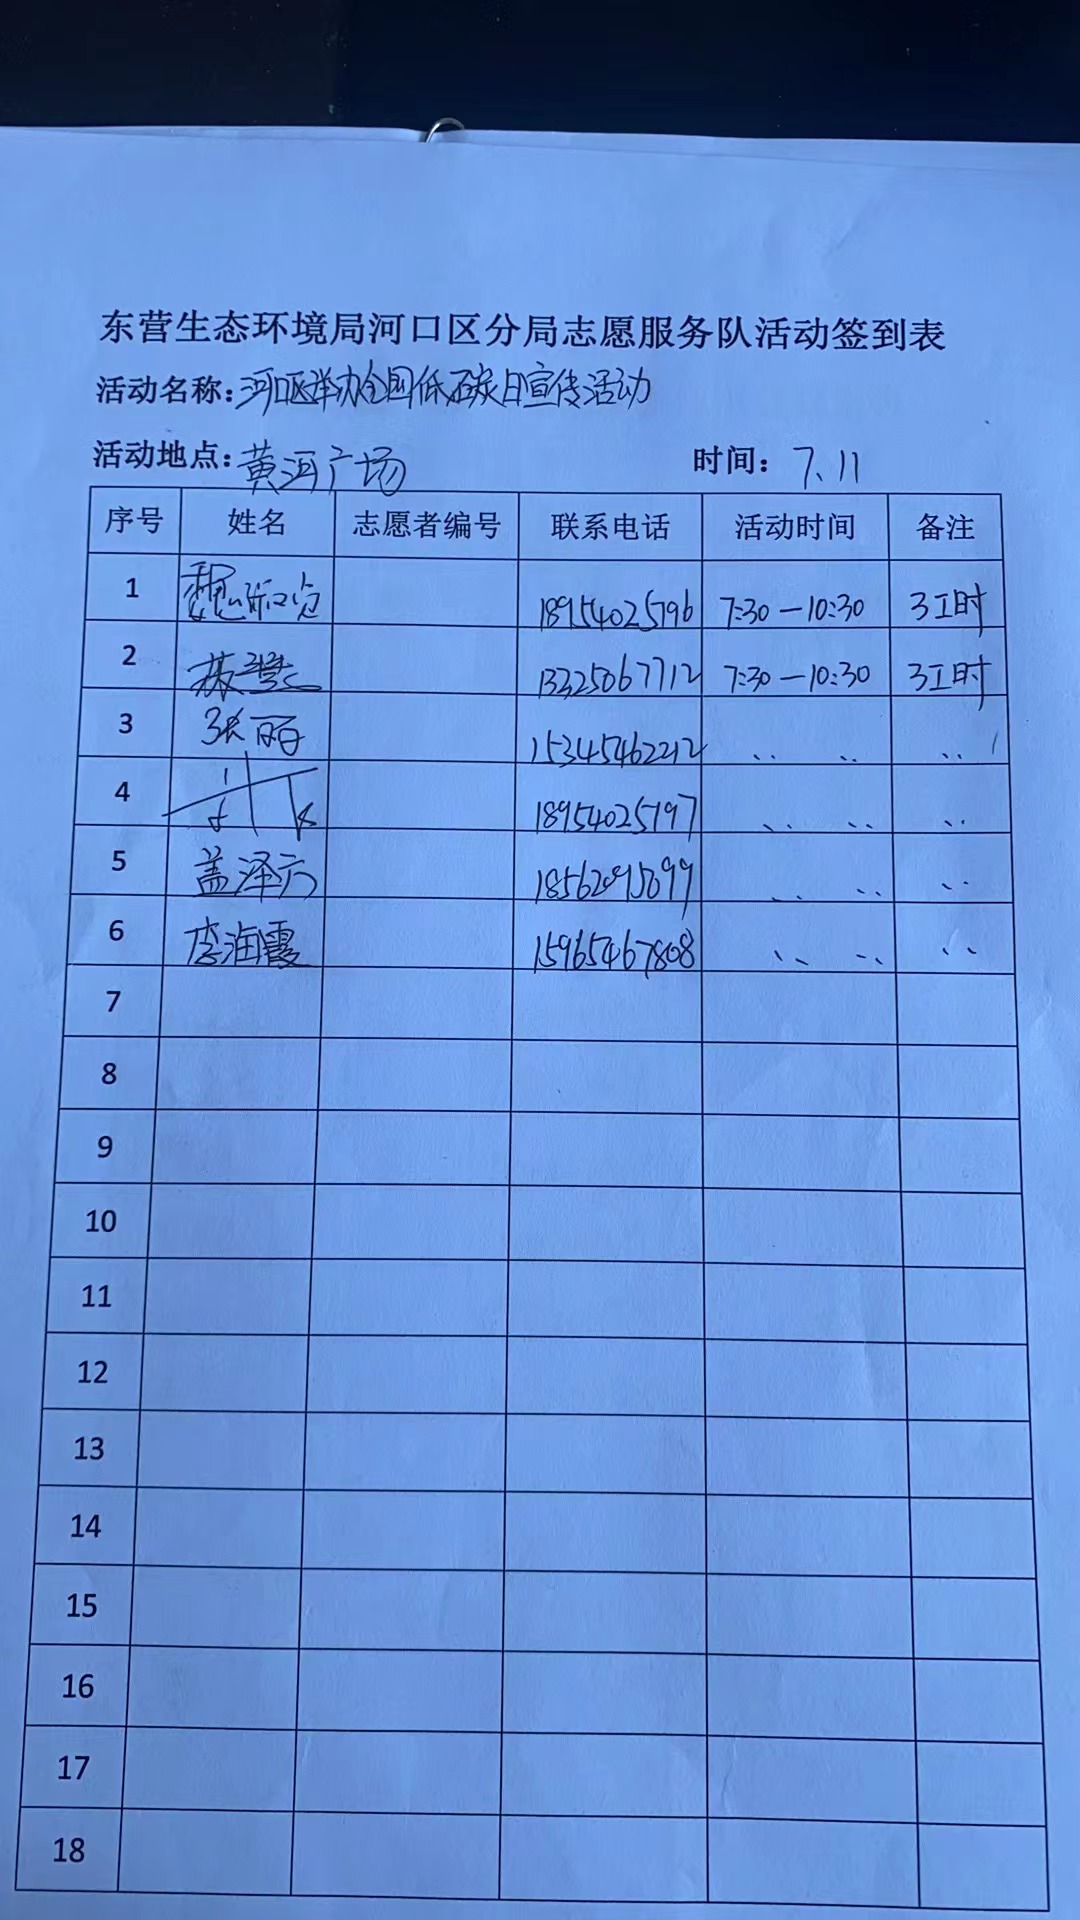 东营生态环境局河口区分局志愿服务队活动签到表
活动名称:河口区举办全国低碳日宣传活动
活动地点:黄河广场 时间: 7.11
序号 姓名 志愿者编号 联系电话 活动时间 备注
1 魏 18954025796 7:30—10:30 3工时
2 13325067712 7:30—10:30 3工时
3 张丽 15345462212 〃 〃 〃
4 18954025797 〃 〃 〃
5 盖泽 〃 〃 〃
6 李海霞 15965467808 〃 〃 〃
7
8
9
10
11
12
13
14
15
16
17
18